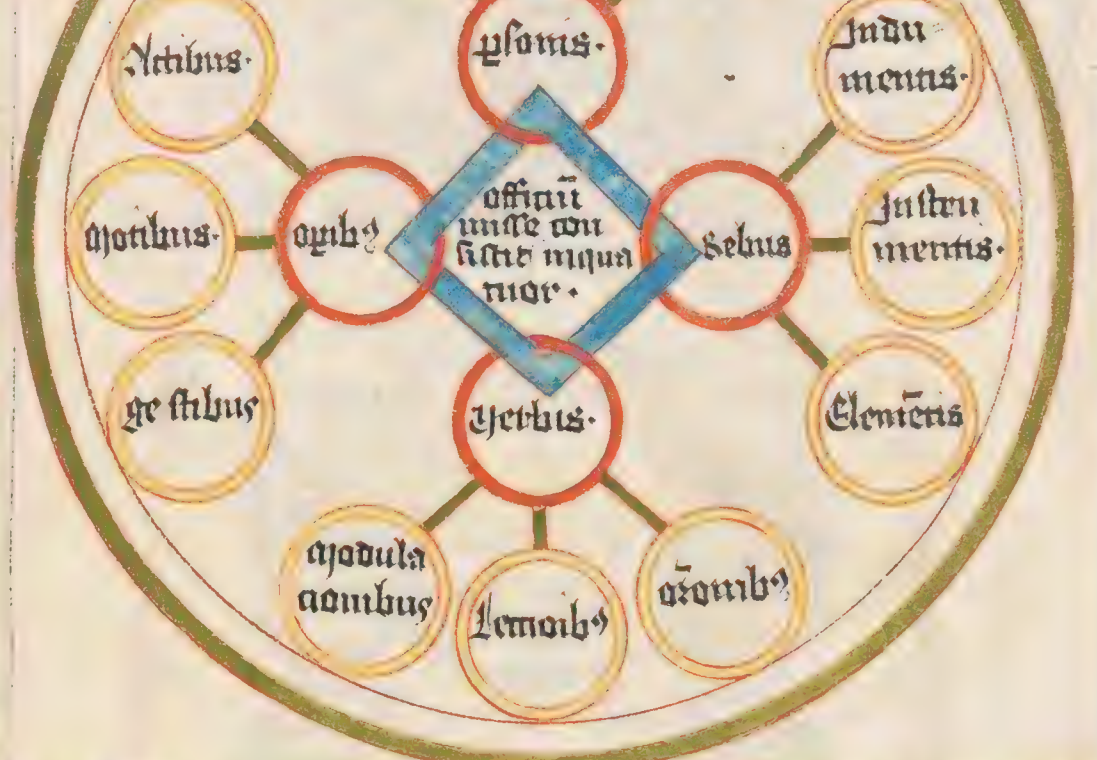 ꝑsonis.
Actibus.
Indu
mentis.
Motibus.
oꝑibꝯ
officiū
misse con
sistit inqua
tuor.
Rebus
Instru
mentis.
gestibus
Verbis.
Elemētis
Modula
cionibus
Lectioibꝯ
or̄onibꝯ